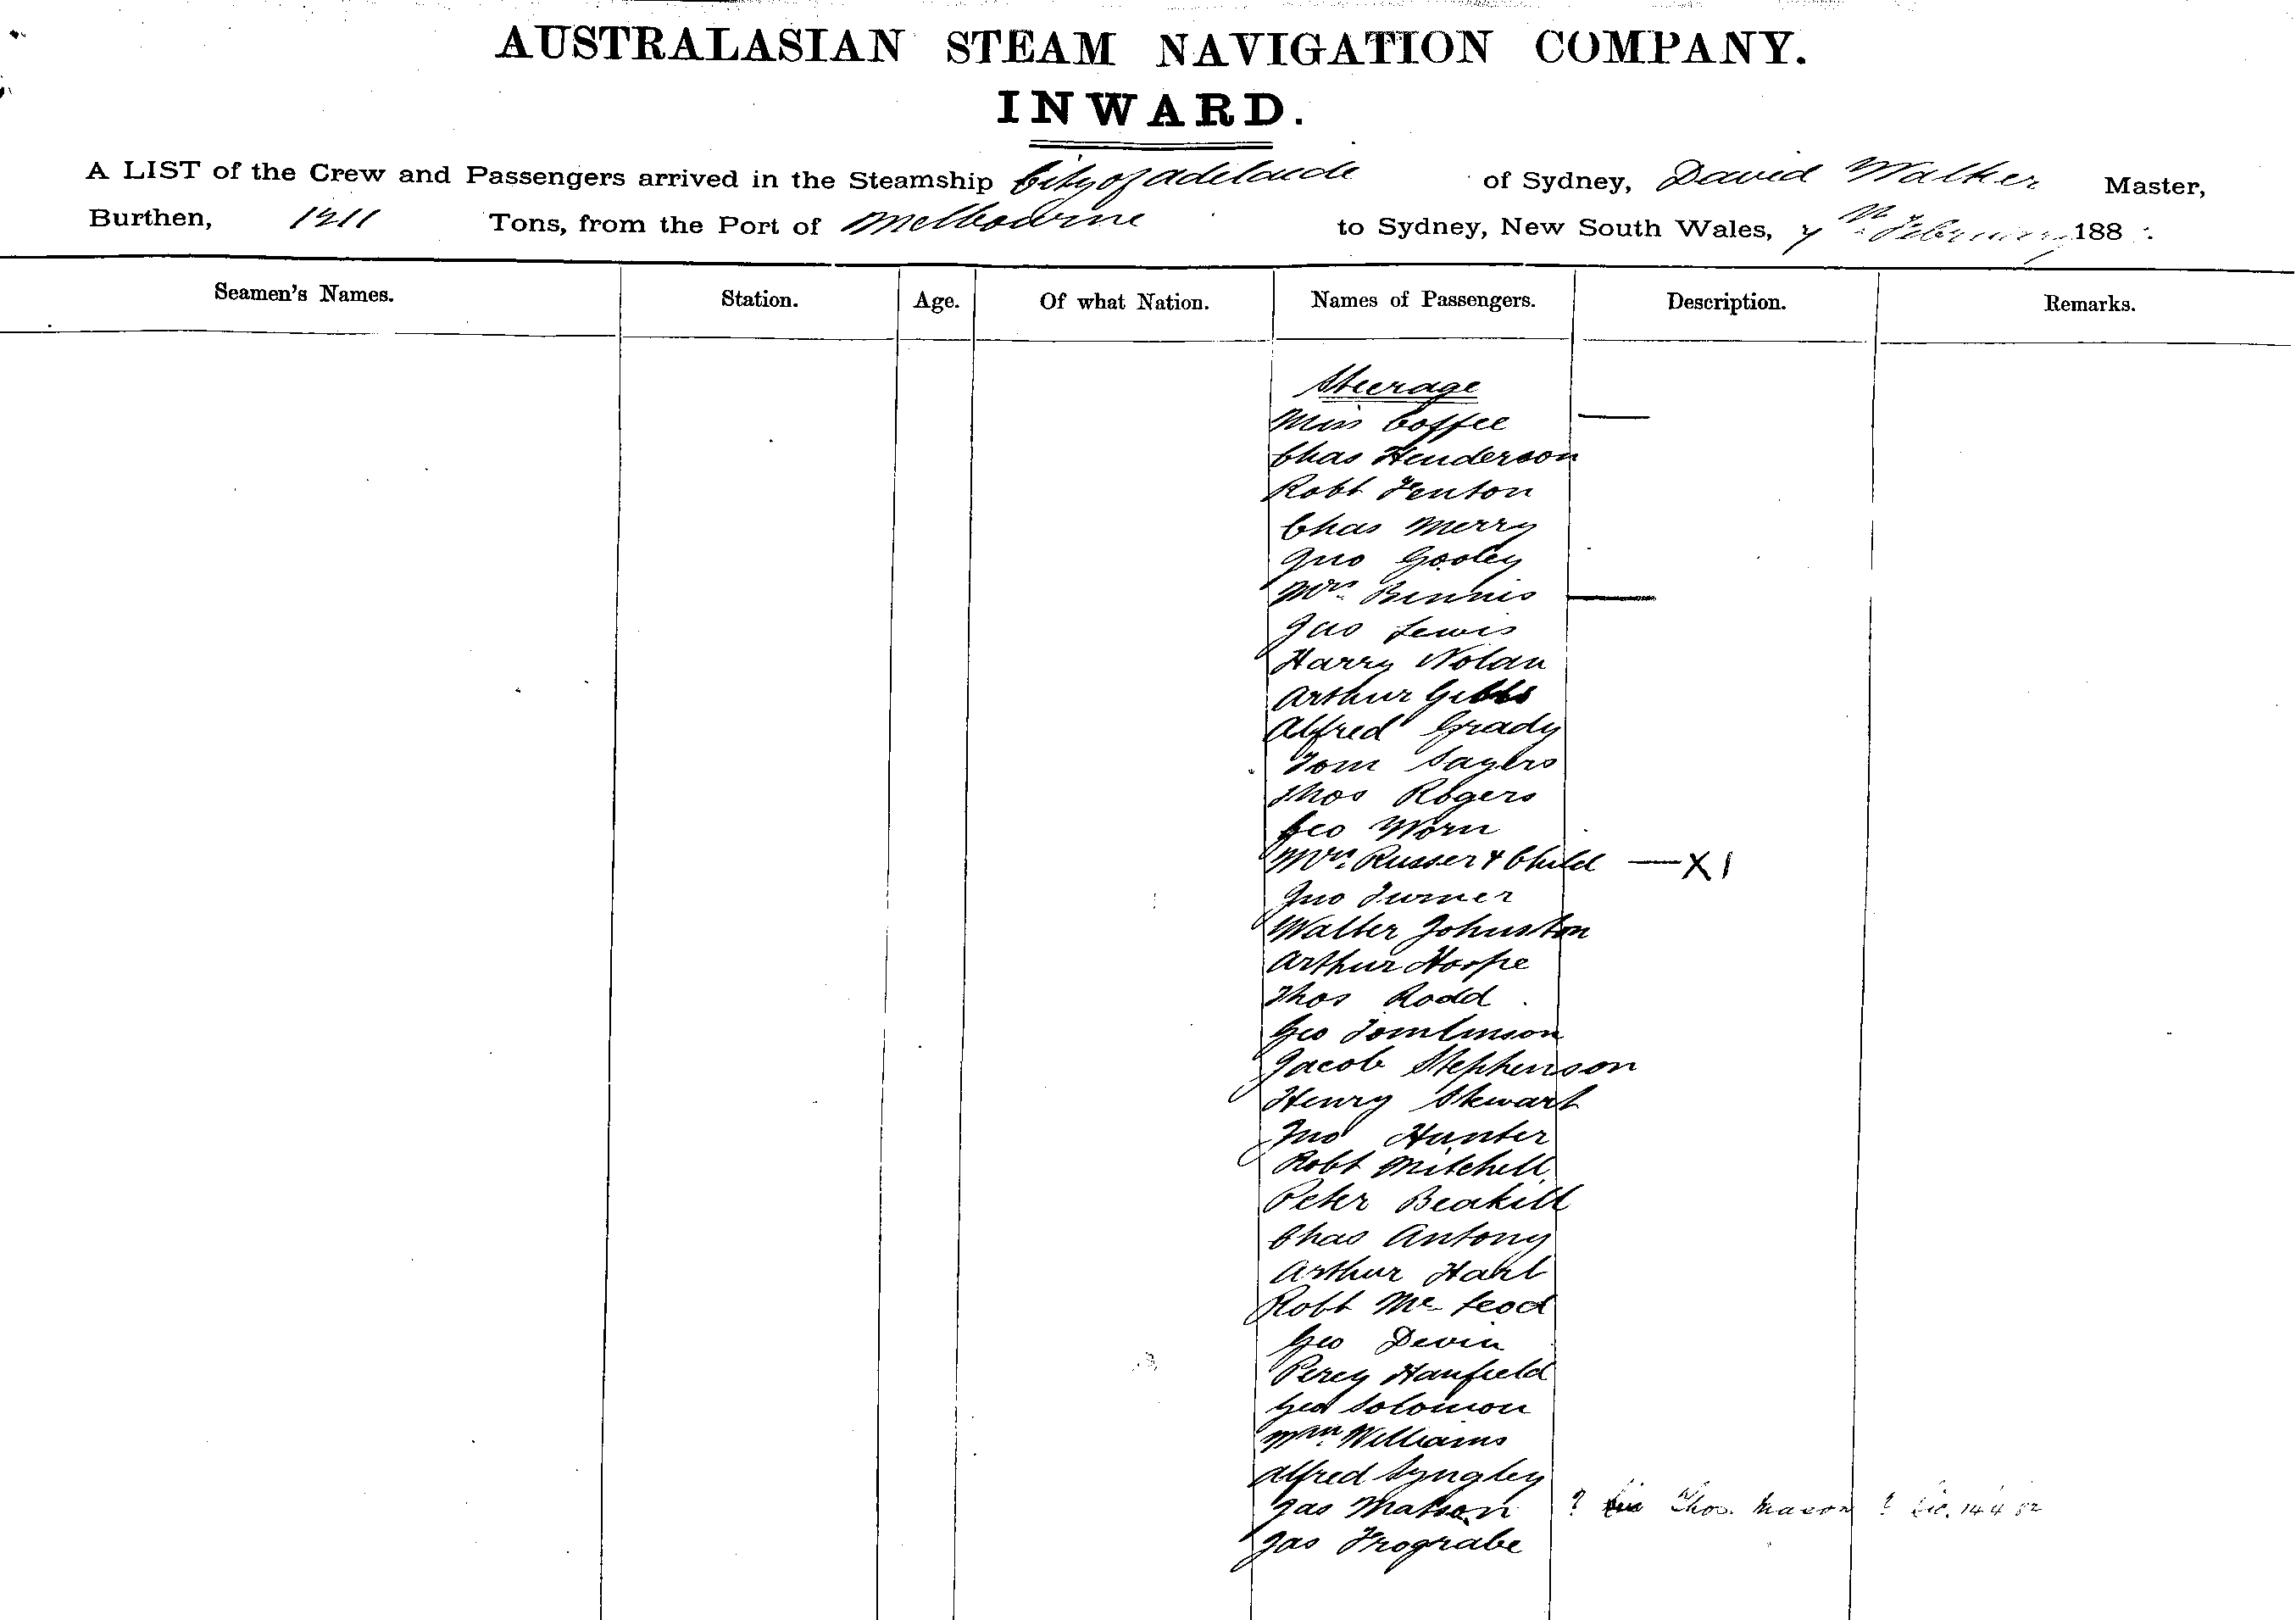 AUSTRALASIAN STEAM NAVIGATION COMPANY.
INWARD.
A LIST of the Crew and Passengers arrived in the Steamship City of Adelaide of Sydney, David Walker Master,
Burthen, 1211 Tons, from the Port of Melbourne to Sydney, New South Wales, 7th February 188
Seamen's Names. Station. Age. Of what Nation. Names of Passengers. Description. Remarks.
Steerage
Miss Coffee —
Chas Henderson
Robt Fenton
Chas Merry
Jno Gooley
Mrs. Binnis —
Jas Lewis
Harry Nolan
Arthur Gibbs
Alfred Grady
Tom Sayers
Thos Rogers
Geo Worn
Mrs. Russer & Child — X 1
Jno Turner
Walter Johnston
Arthur Hoope
Thos Rodd
Geo Tomlinson
Jacob Stephenson
Henry Stewart
Jno Hunter
Robt Mitchell
Peter Beakill
Chas Antony
Arthur Hart
Robt Mc Leod
Geo Devin
Percy Hanfield
Geo Solomon
Wm. Williams
Alfred Syngley
Jas Matson ? Thos. Mason ?
Jas Frograbe